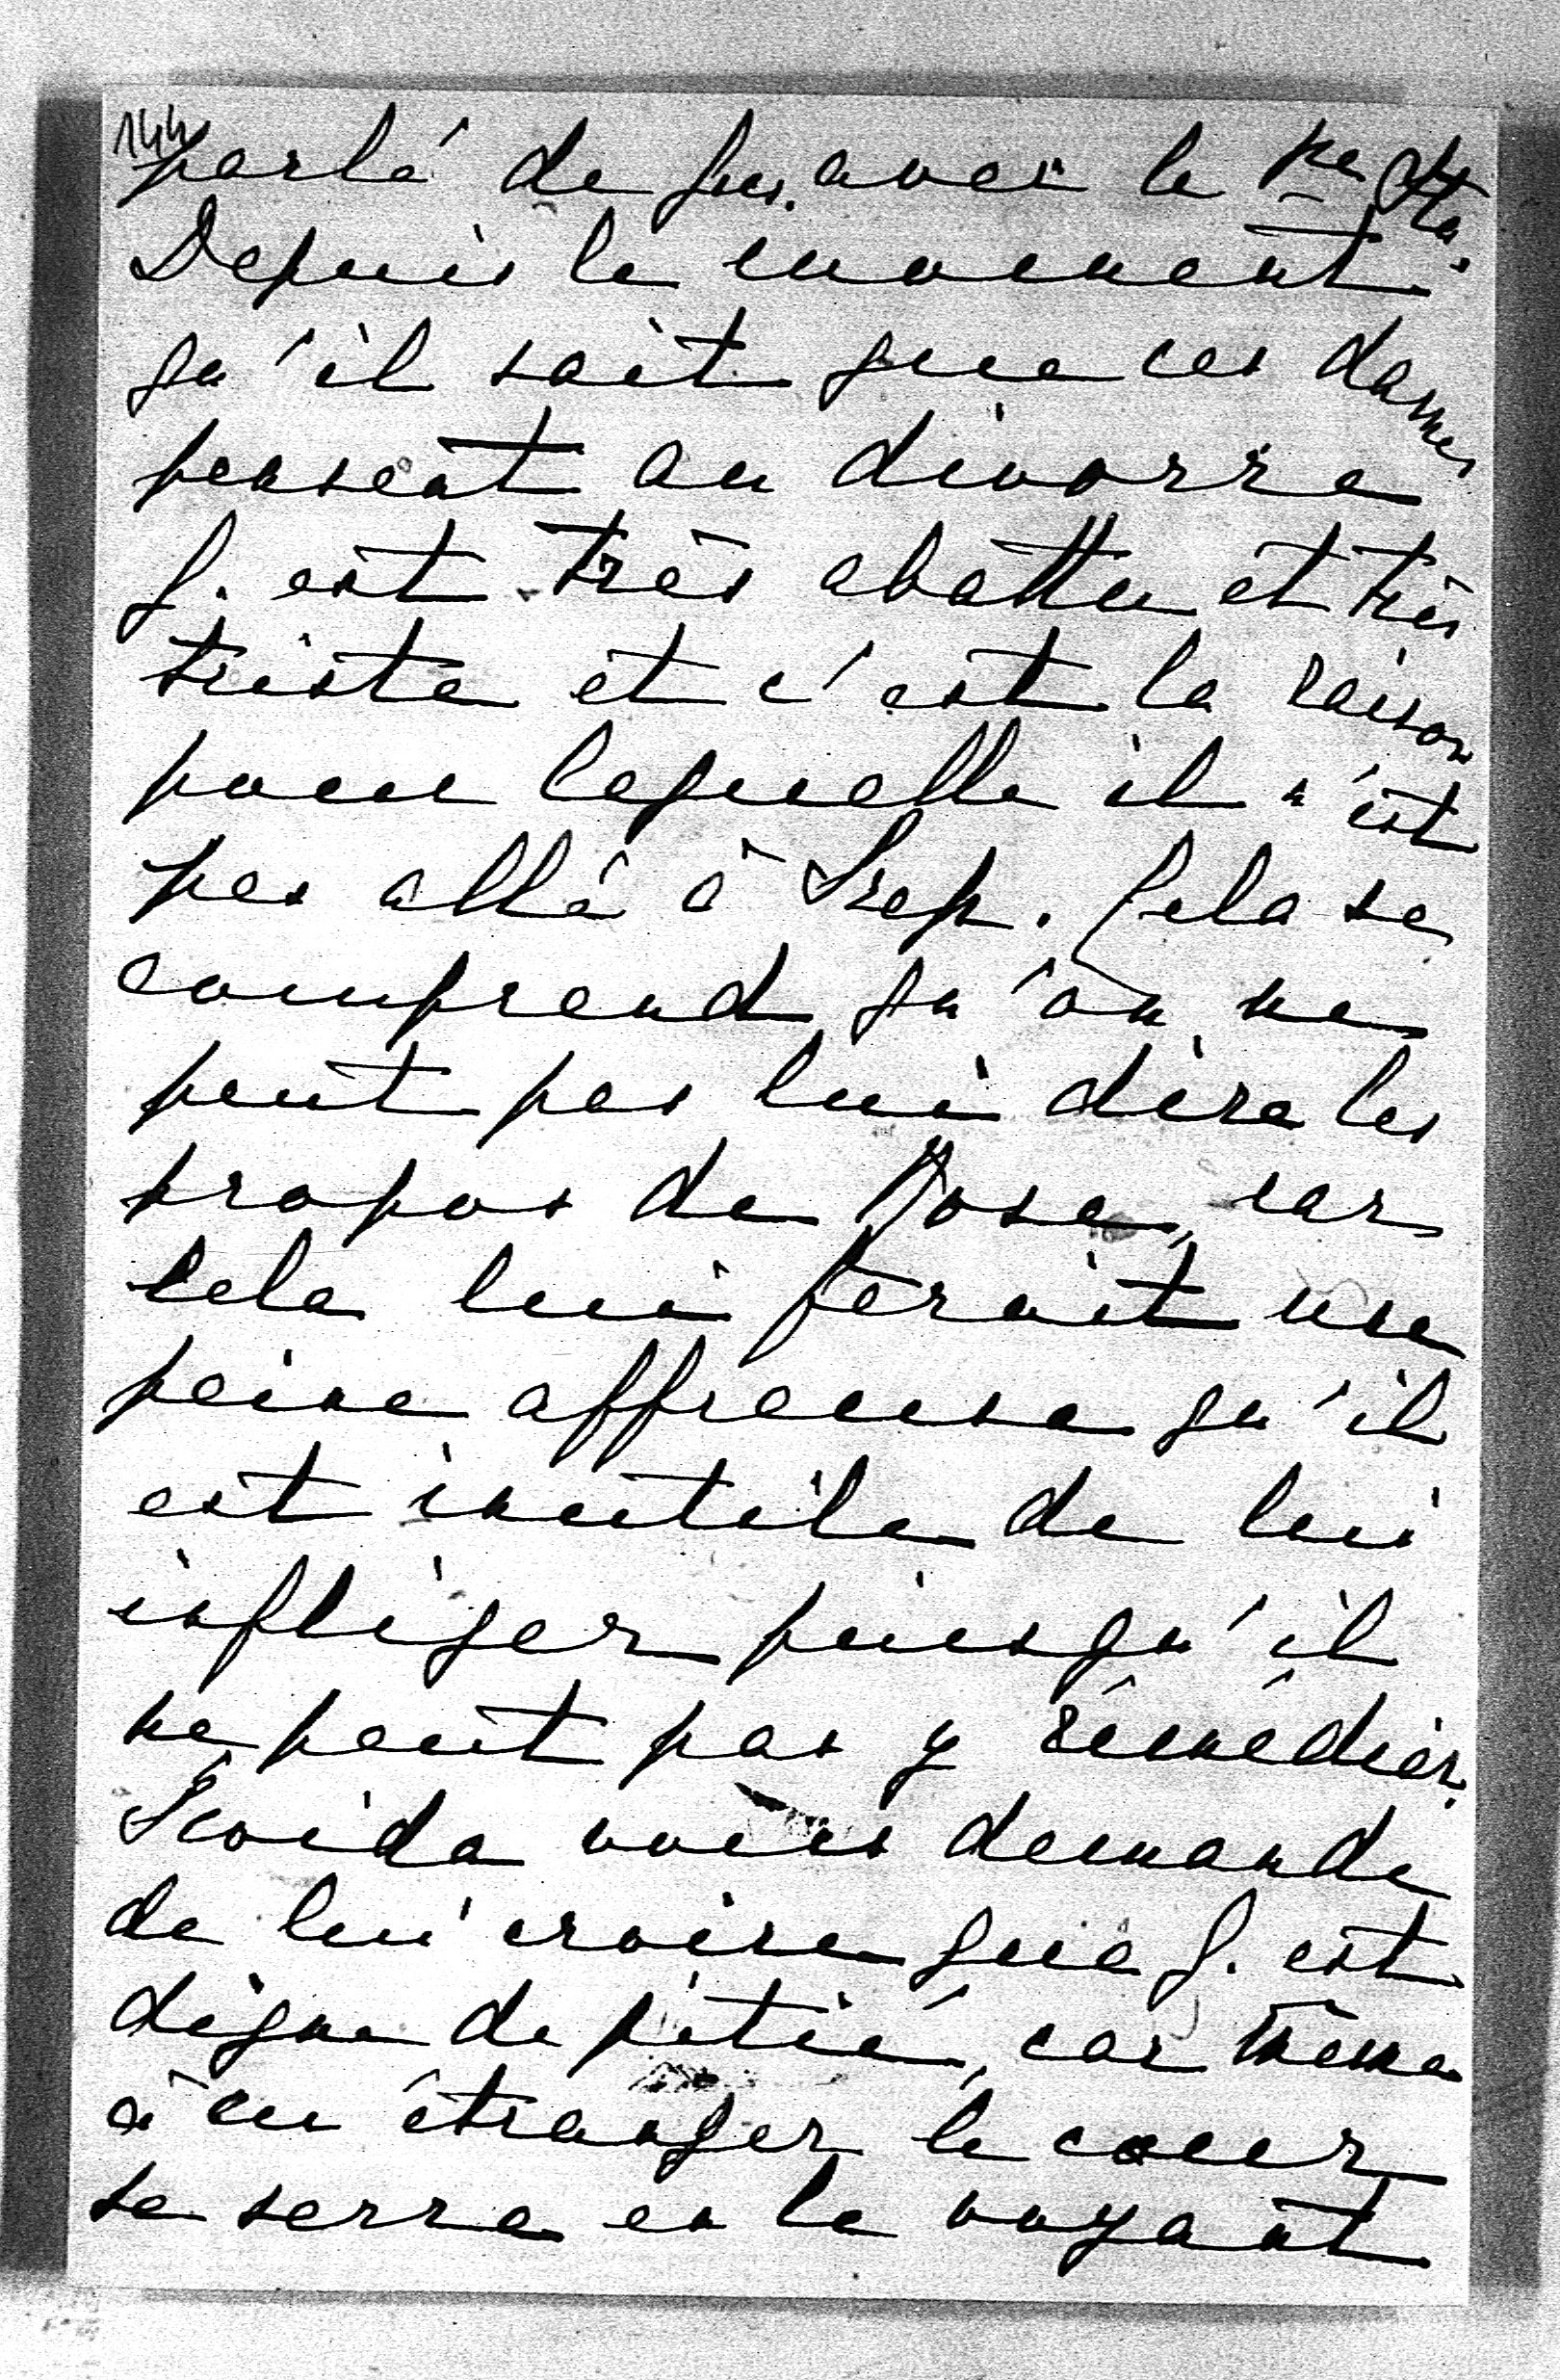 144
parlé de J. avec le Pce Otto.
Depuis le moment
qu'il sait que ces dames
pensent au divorce
J. est très abattu et très
triste et c'est la raison
pour laquelle il n'est
pas allé à Srep. Cela se
comprend qu'on ne
peut pas lui dire les
propos de Rosa, car
cela lui ferait une
peine affreuse qu'il
est inutile de lui
infliger puisqu'il
ne peut pas y rémédier.
Scoida vous demande
de lui croire que J. est
digne de pitié, car même
à un étranger le coeur
se serre en le voyant